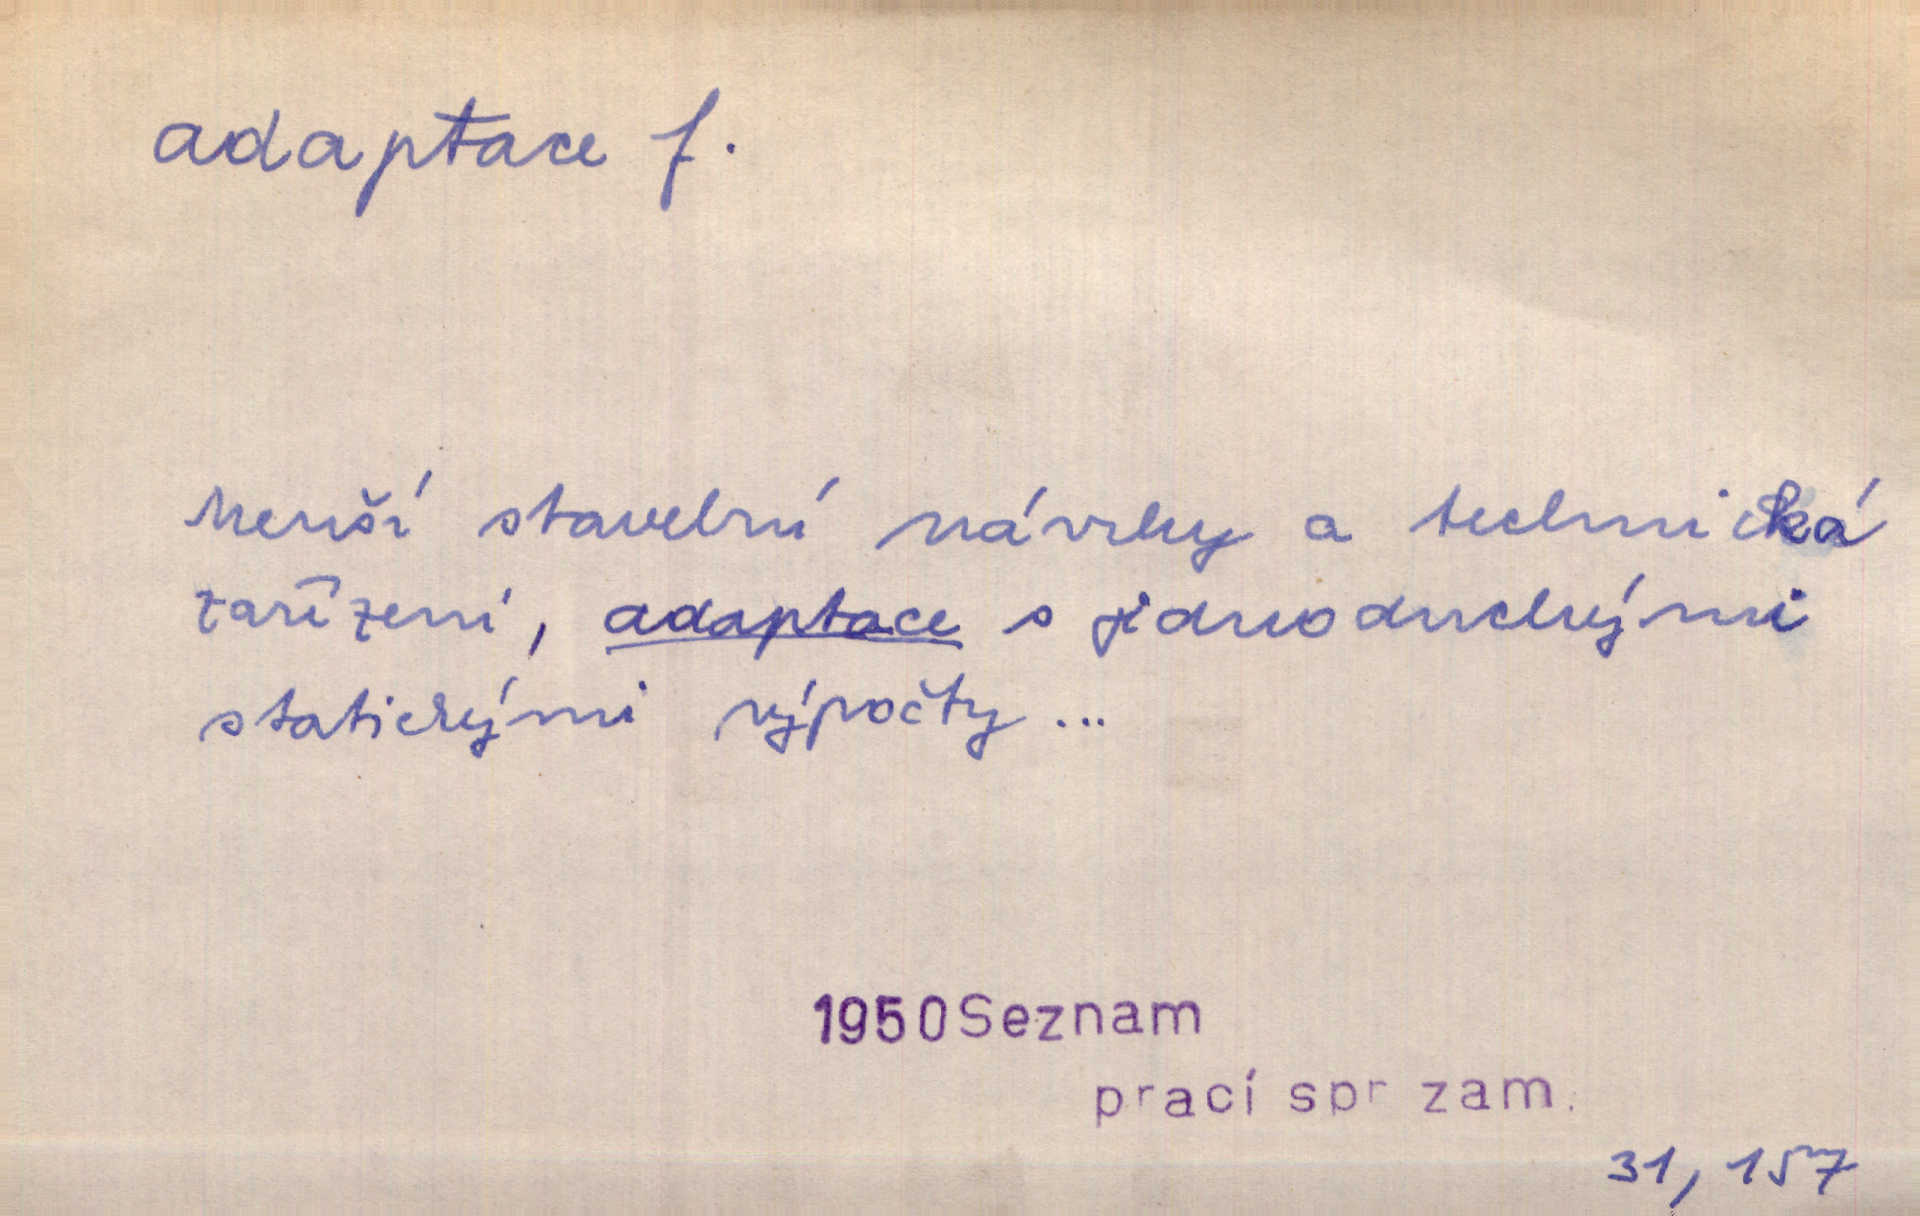 adaptace f.
Menší stavební návrhy a technická
zařízení, adaptace s jednoduchými
statickými výpočty ...
1950 Seznam
prací spr zam.
31, 157